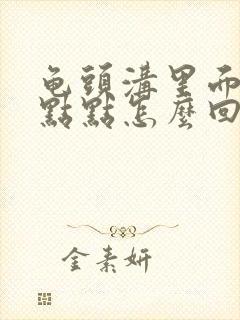 龟頭溝里而
點點怎麼回
金素妍